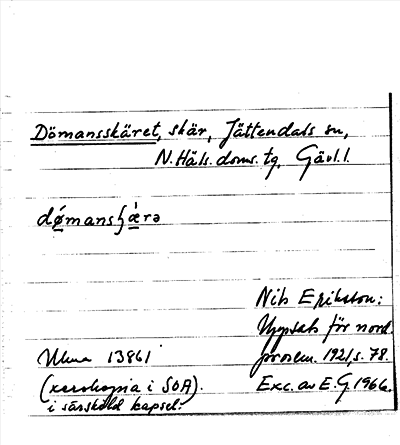 Dömansskäret, skär, Jättendals sn,
N. Häls. doms. tg. Gävl. l.
dǿmansʃæ̀rə
Nils Eriksson:
Uppsats för nord.
prosem. 1921, s. 78.
Exc. av E. G. 1966.
Ulma 13861
(xerokopia i SOA).
i särskild kapsel.